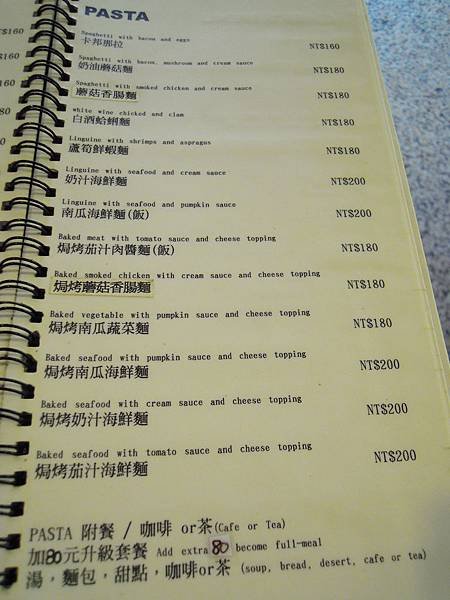 PASTA
NT$160
Spaghetti with bacon and eggs
卡邦那拉 NT$160
Spaghetti with bacon, mushroom and cream sauce
奶油蘑菇麵 NT$180
Spaghetti with smoked chicken and cream sauce
蘑菇香腸麵 NT$180
white wine chicked and clam
白酒蛤蜊麵 NT$180
Linguine with shrimps and aspragus
蘆筍鮮蝦麵 NT$180
Linguine with seafood and cream sauce
奶汁海鮮麵 NT$200
Linguine with seafood and pumpkin sauce
南瓜海鮮麵(飯) NT$200
Baked meat with tomato sauce and cheese topping
焗烤茄汁肉醬麵(飯) NT$180
Baked smoked chicken with cream sauce and cheese topping
焗烤蘑菇香腸麵 NT$180
Baked vegetable with pumpkin sauce and cheese topping
焗烤南瓜蔬菜麵 NT$180
Baked seafood with pumpkin sauce and cheese topping
焗烤南瓜海鮮麵 NT$200
Baked seafood with cream sauce and cheese topping
焗烤奶汁海鮮麵 NT$200
Baked seafood with tomato sauce and cheese topping
焗烤茄汁海鮮麵 NT$200
PASTA 附餐 / 咖啡 or茶(Cafe or Tea)
加80元升級套餐 Add extra 80 become full-meal
湯，麵包，甜點，咖啡or茶 (soup, bread, desert, cafe or tea)